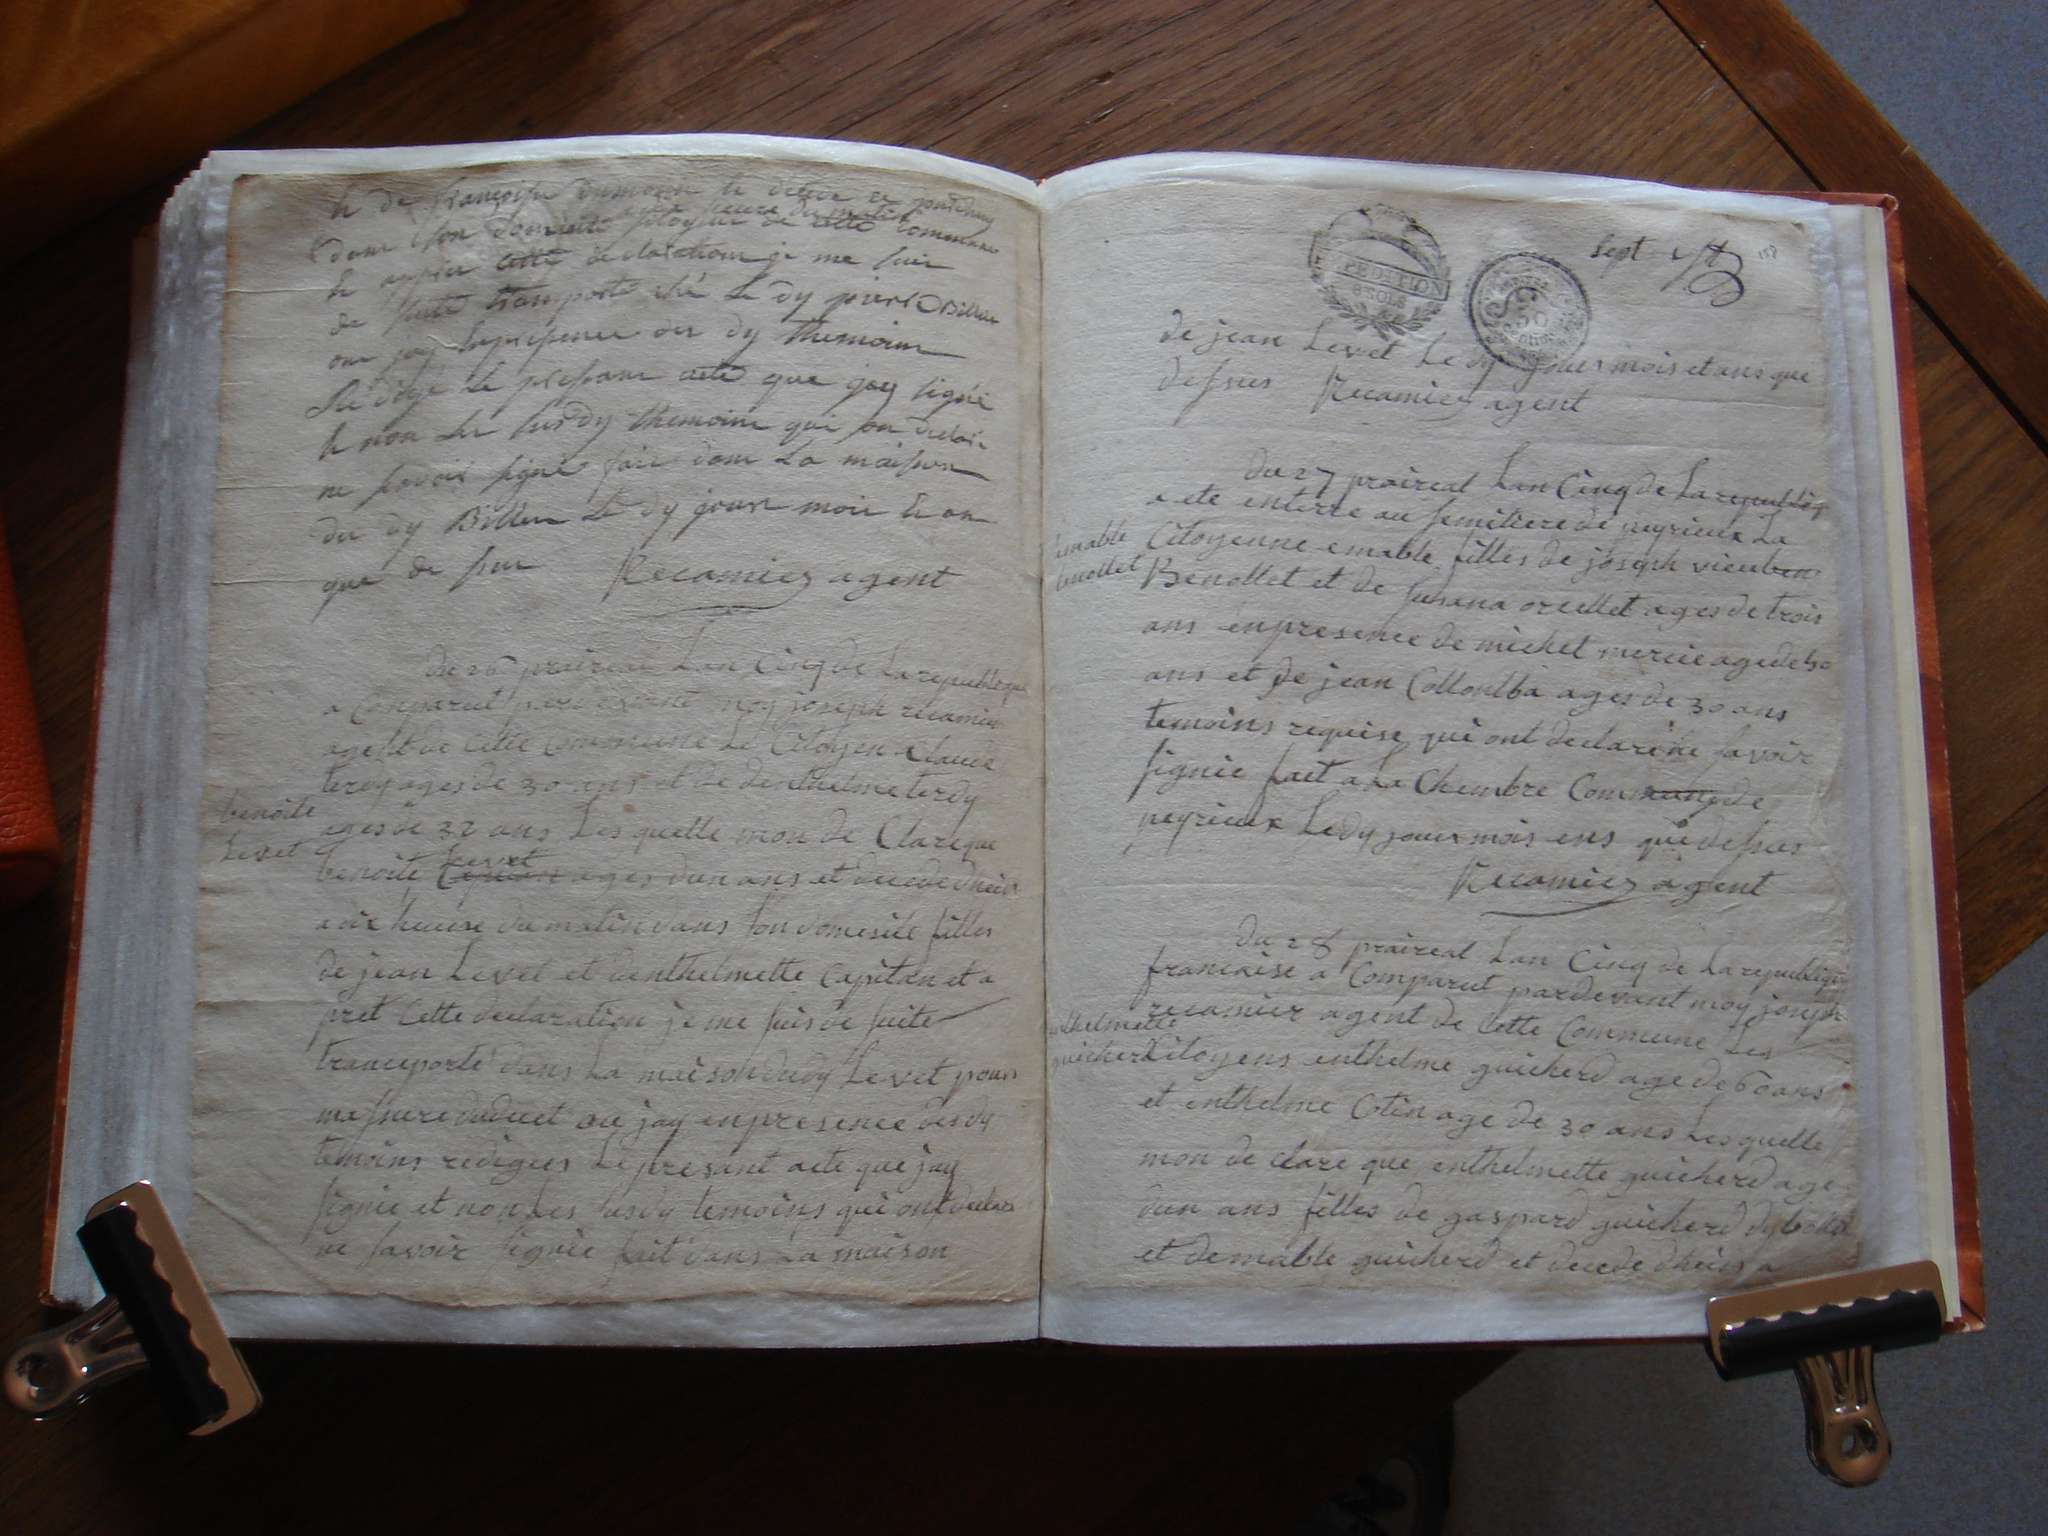 dans son domicile citoyen de cette commune
cette declaration je me suis
de suite transporté ché Le dy pierre Billiu
du dy themoins
Rédigé Le presant acte que jay signé
et non Les susdy themoins qui on declaré
ne savoir signé fait dans La maison
du dy Billiu Le dy jour mois et an
que de sus Recamier agent
du 26 prairéal Lan Cinq de La republique
a Comparut pardevant moy joseph recamier
agent de Cette Commune Le Citoyen Claude
terdy ages de 30 ans et de denthelme terdy
benoite
Levet
ages de 32 ans Les quelle mon de Clare que
benoite Levet ages dun ans et decede
a dix heure du matin dans son domisile filles
de jean Levet et denthelmette Capitan et a
pret Cette declaration je me suis de suite
transporté dans La maison dudy Levet pour
massure du ducet ou jay enpresence desdy
temoins rediges Le presant acte que jay
signie et non Les susdy temoins qui ont declare
ne savoir signie fait dans La maison
sept 158
EXPEDITION
6 SOLS
de jean Levet Le dy jour mois et ans que
dessus Recamier agent
du 27 prairéal Lan Cinq de La republiq
a ete enterre au semitiere de peyrieux La
emable
benollet
Citoyenne emable filles de joseph
Benollet et de susana ages de trois
ans enpresence de michel mercie age de 50
ans et de jean Collomba ages de 30 ans
temoins requise qui ont declare ne savoir
signie fait a La Chembre Commune de
peyrieux Le dy jour mois ens que dessus
Recamier agent
du 28 prairéal Lan Cinq de La republique
francaise a Comparut pardevant moy joseph
recamier agent de Cette Commune Les
enthelmette
guicherd
Citoyens enthelme guicherd age de 60 ans
et enthelme Cotin age de 30 ans Les quelle
mon de clare que enthelmette guicherd age
dun ans filles de gaspard guicherd dy
et demable guicherd et decede dheir a